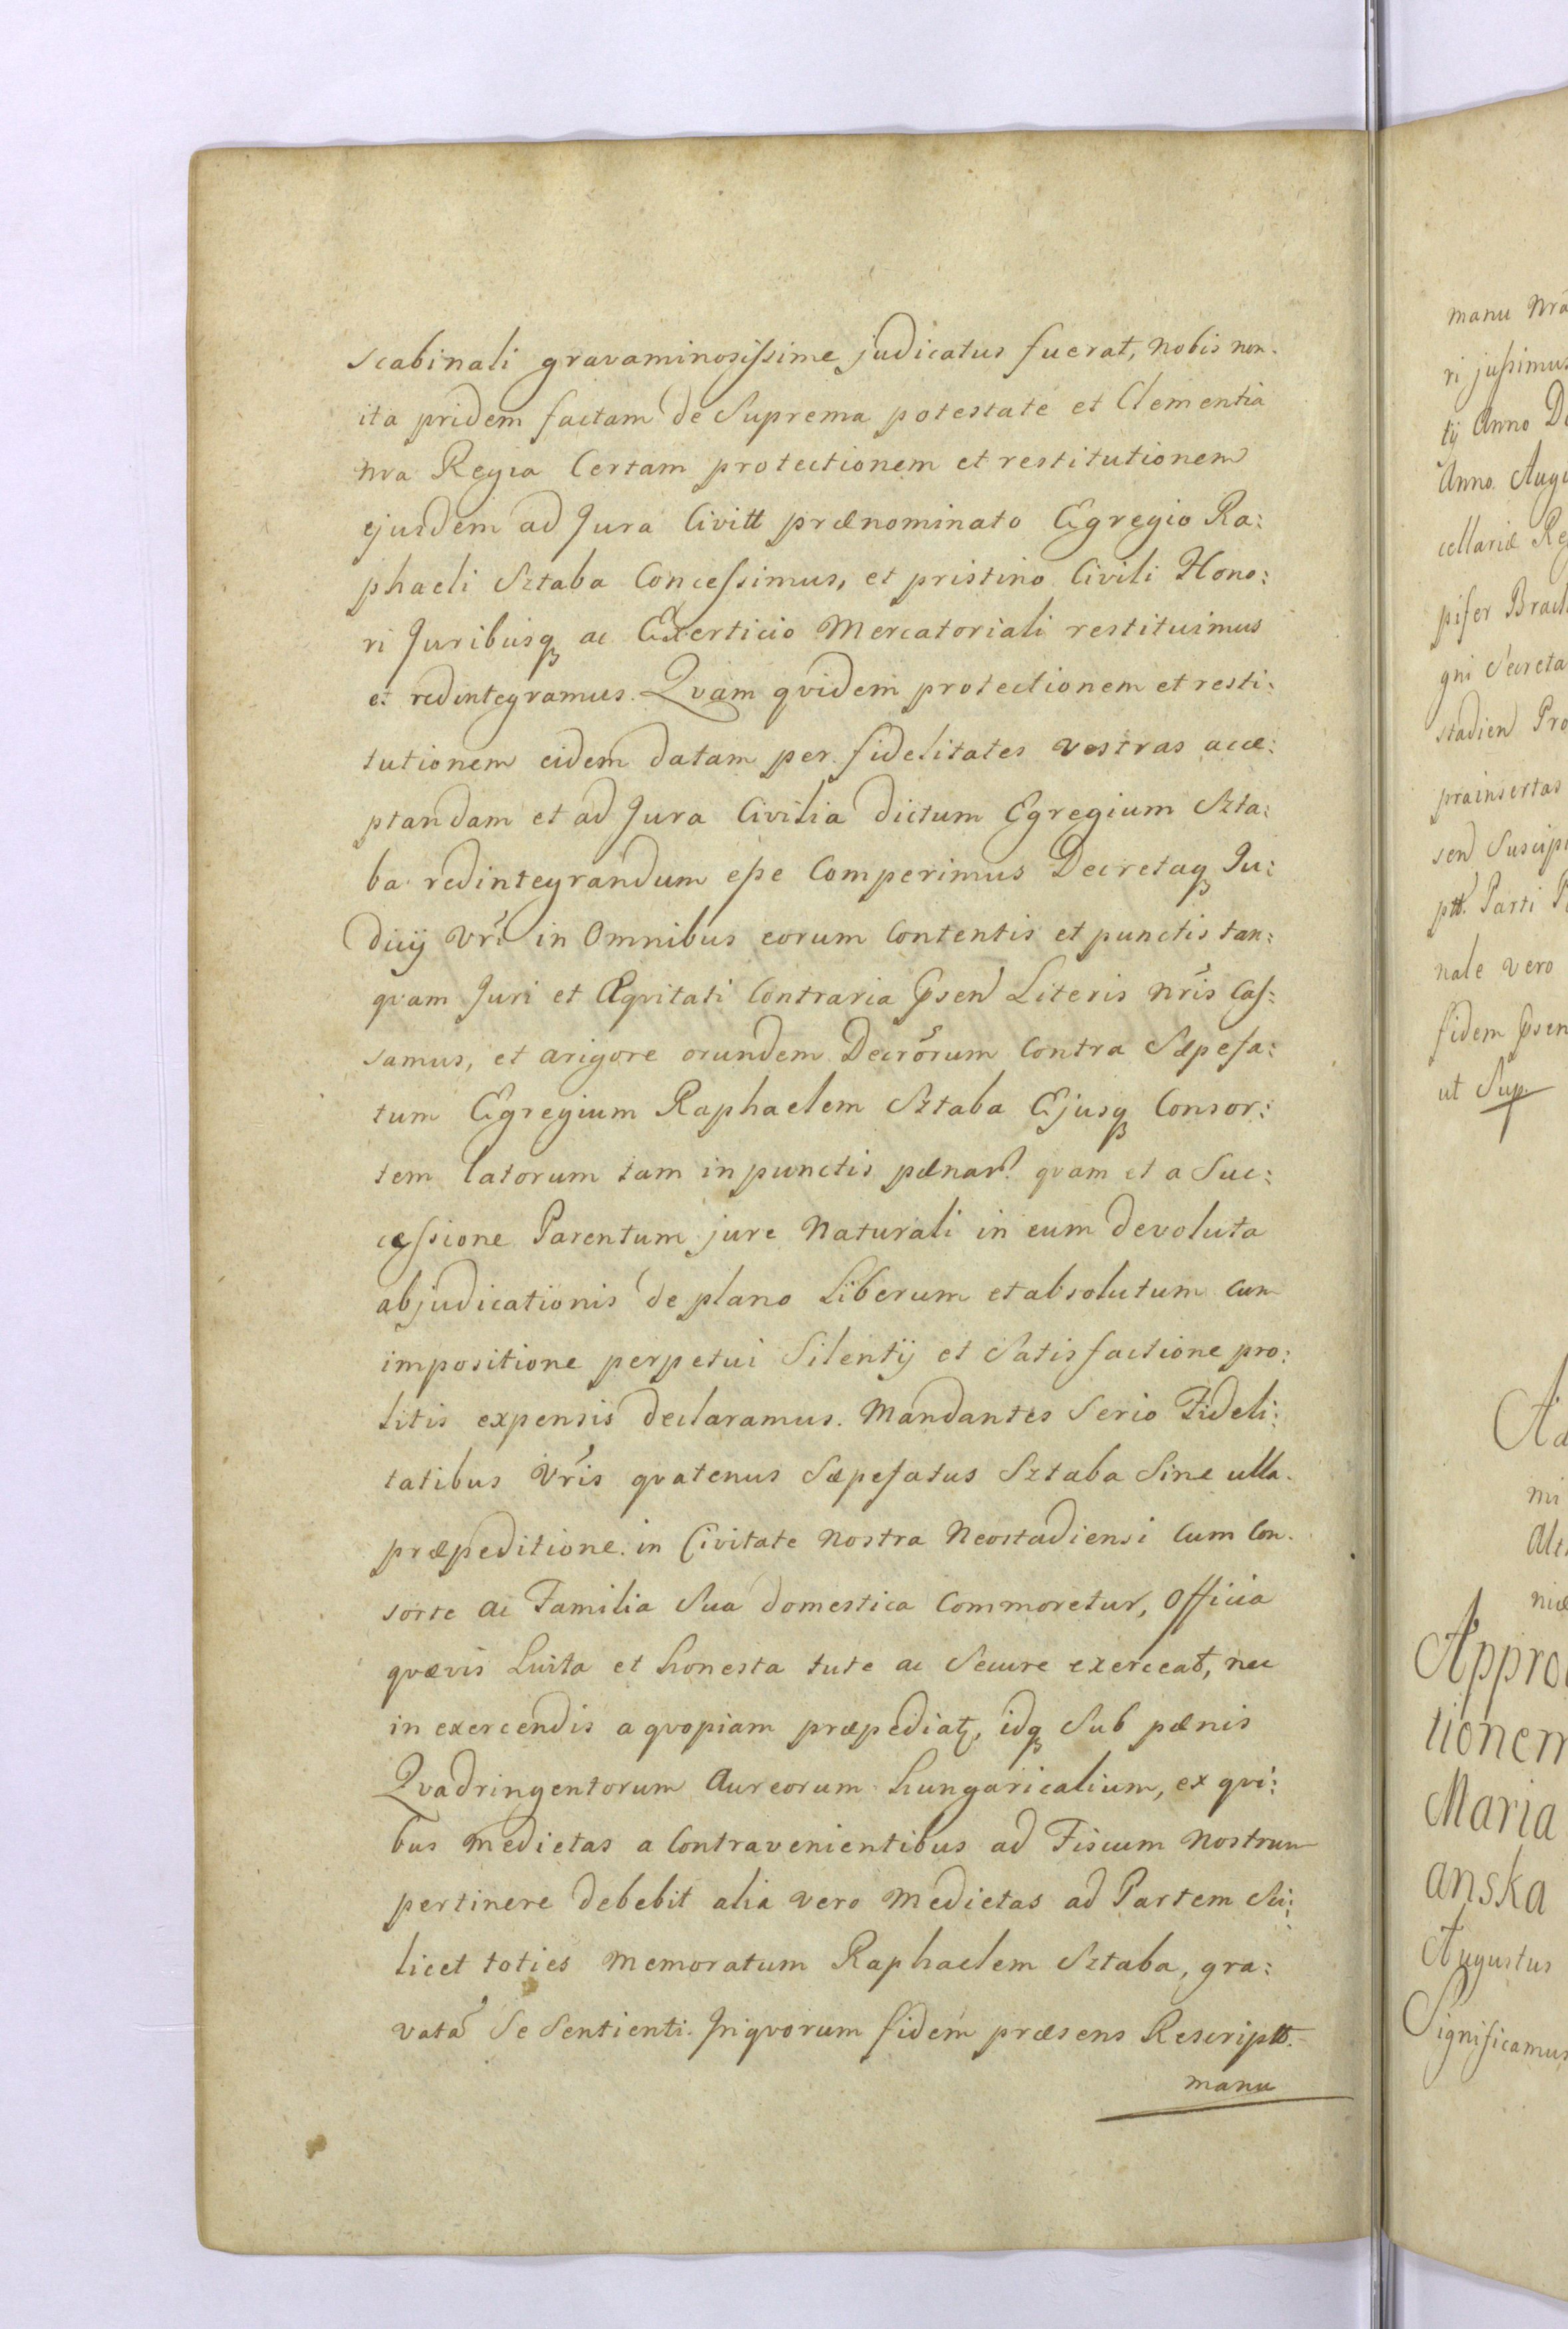 scabinali gravaminosissime judicatus fuerat, nobis non
ita pridem factam de Suprema potestate et Clementia
nra Regia Certam protectionem et restitutionem
ejusdem ad Jura Civitt prænominato Egregio Ra:
phaeli Sztaba Concessimus, et pristino Civili Hono:
ri Juribusq ac Exerticio Mercatoriali restituimus
et redintegramus. Qvam qvidem protectionem et resti:
tutionem eidem datam per fidelitates vestras acce:
ptandam et ad Jura Civilia dictum Egregium Szta:
ba redintegrandum esse Comperimus Decretaq Ju:
dicij Vri in Omnibus eorum Contentis et punctis tan:
qvam Juri et Æqvitati Contraria Psen Literis nris Cas:
samus, et arigore orundem Decrorum Contra Sæpefa:
tum Egregium Raphaelem Sztaba Ejusq Consor:
tem latorum tam in punctis pænar. qvam et a Suc:
cessione Parentum jure Naturali in eum devoluta
abjudicationis de plano Liberum et absolutum cum
impositione perpetui Silentij et Satisfactione pro:
litis expensis declaramus. Mandantes Serio Fideli:
tatibus Vris qvatenus Sæpefatus Sztaba Sine ulla
præpeditione in Civitate Nostra Neostadiensi Cum Con.
sorte ac Familia Sua domestica Commoretur, Officia
qvævis Licita et honesta tute ac Secure exerceat, nec
in exercendis a qvopiam præpediatz, idq Sub pænis
Qvadringentorum Aureorum hungaricalium, ex qvi:
bus medietas a Contravenientibus ad Fiscum Nostrum
pertinere debebit alia vero medietas ad Partem Sci:
licet toties memoratum Raphaelem Sztaba, gra:
vatã Se Sentienti. In qvorum fidem præsens Rescriptt.
manu
manu nra
ri jussimus
tij Anno D
Anno Aug
cellariæ Re
pifer Bracl
gni Secreta
stadien Pro
præinsertas
sen Suscipi
ptt. Parti P
nale vero
fidem Psen
ut Sup.
Appro
tionem
Maria
anska
Augustus
Significamus